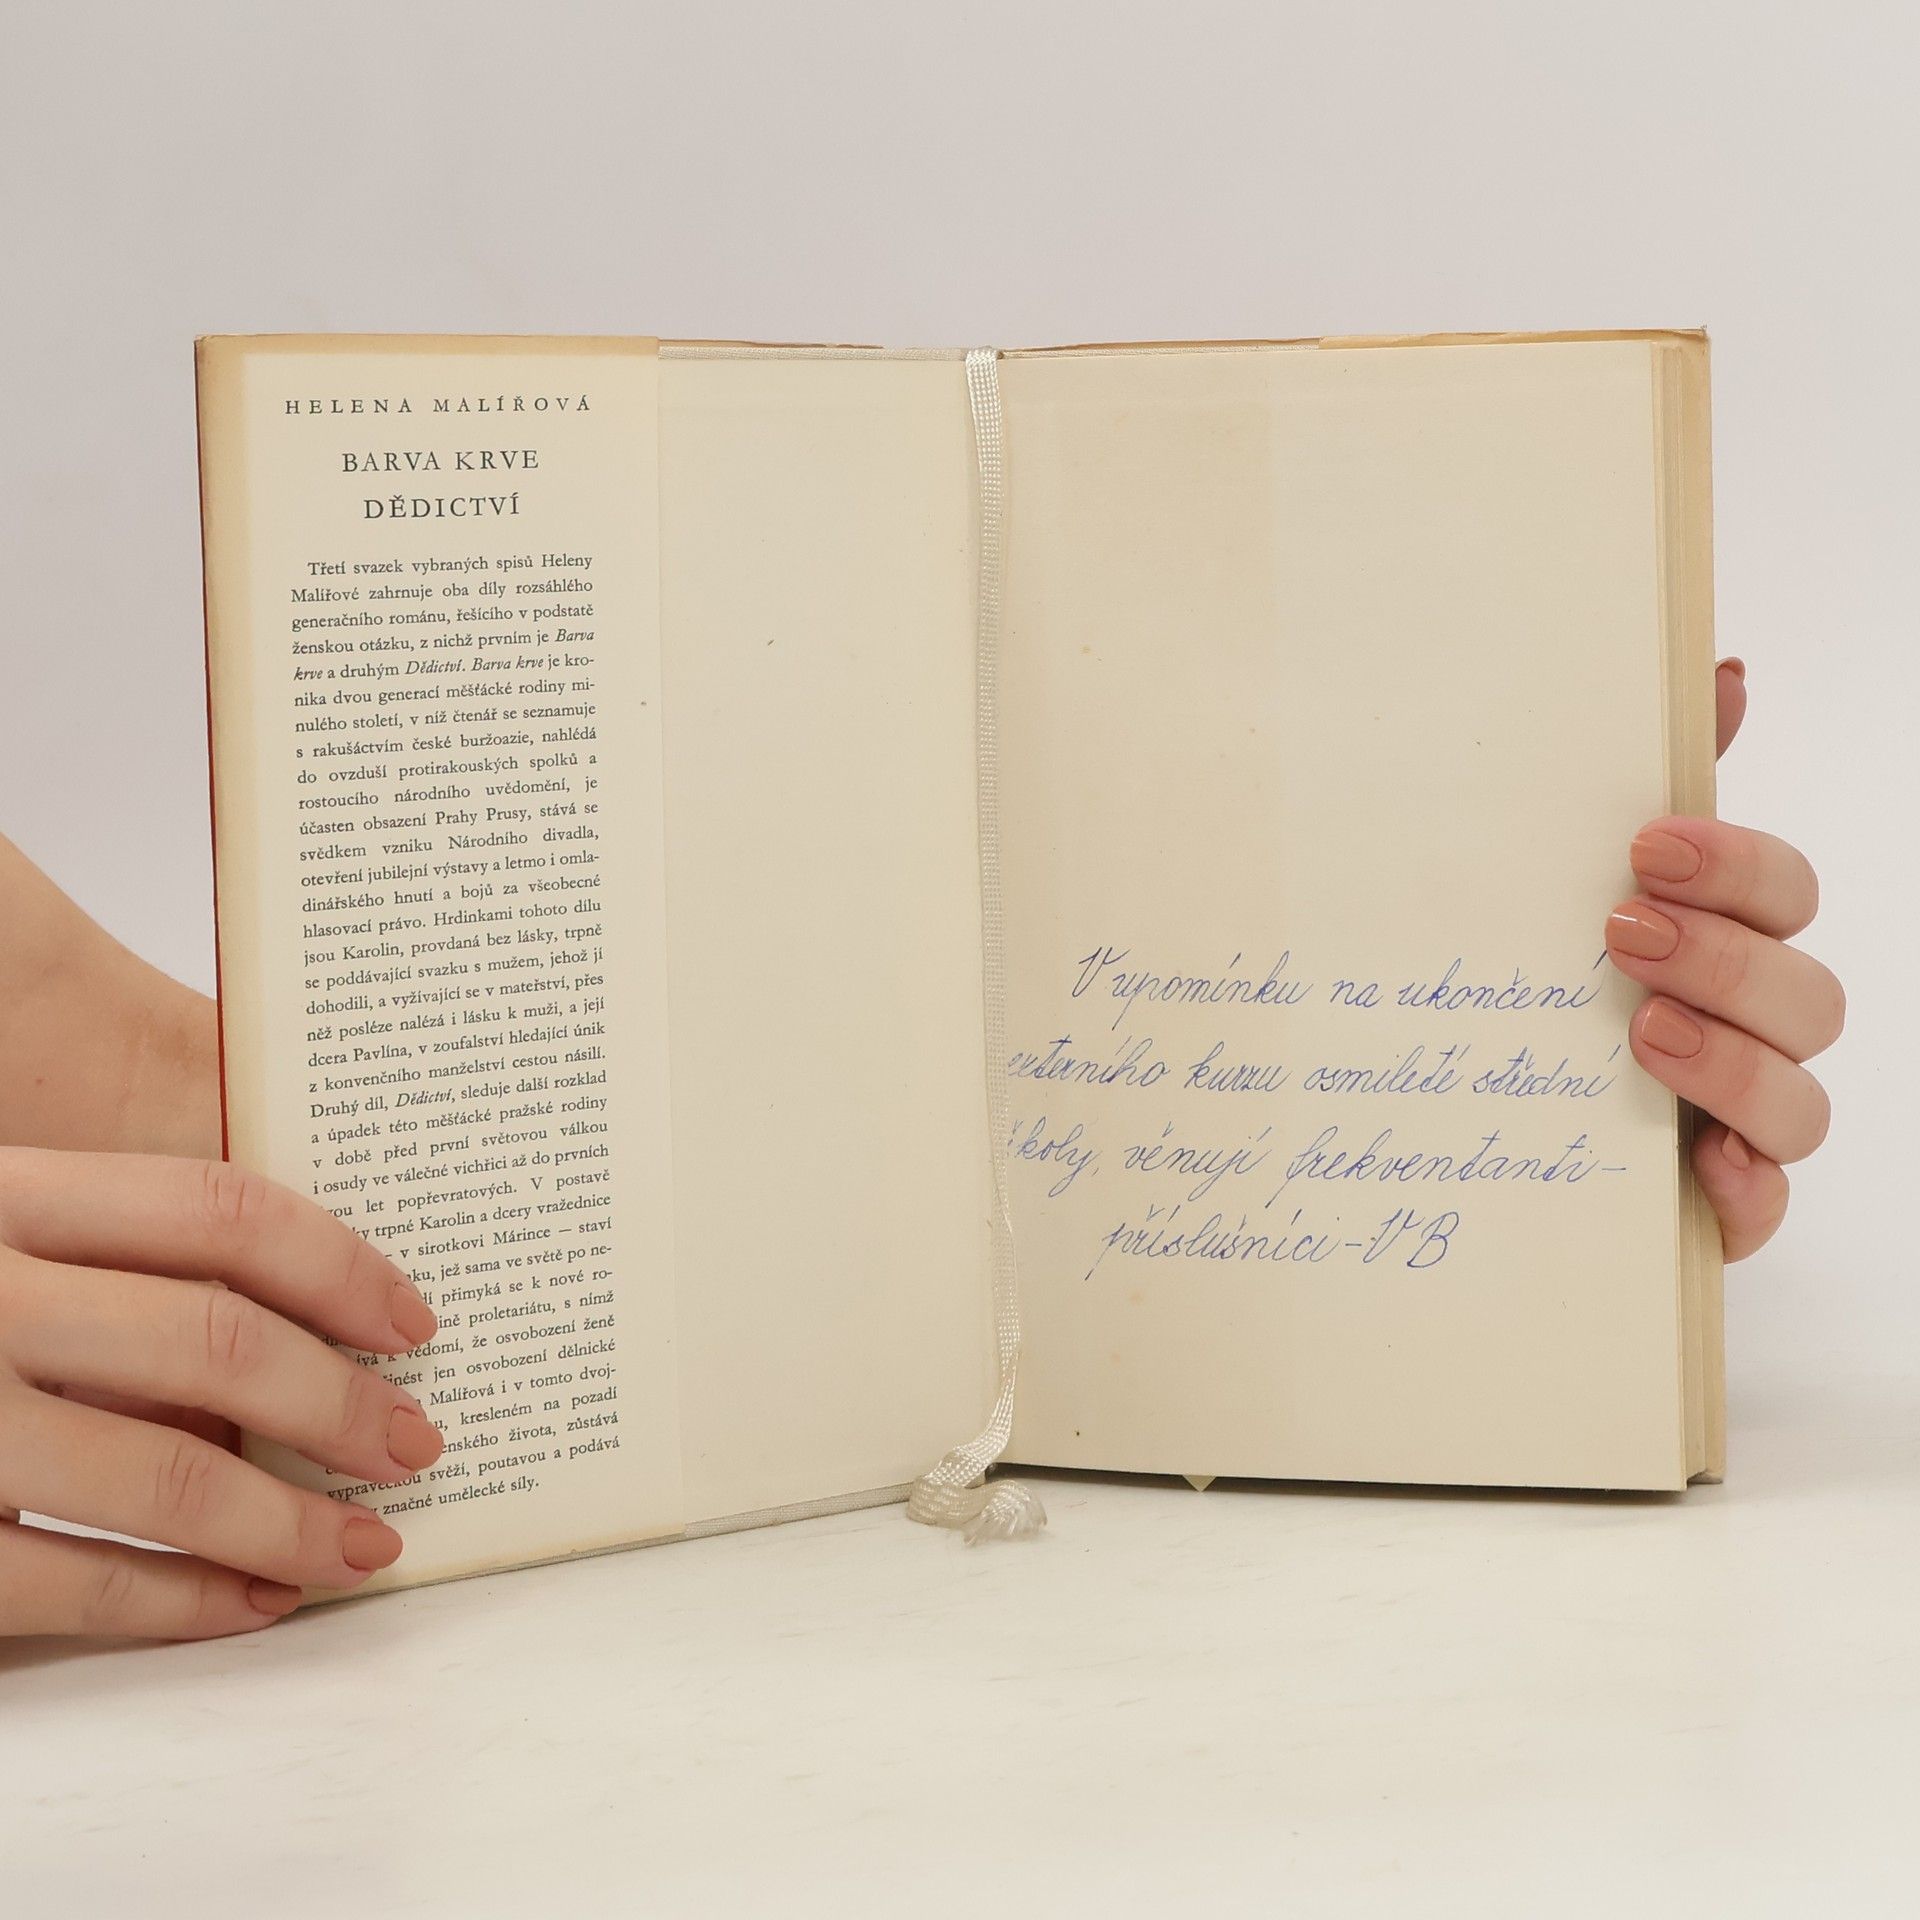 HELENA MALÍŘOVÁ
BARVA KRVE
DĚDICTVÍ
Třetí svazek vybraných spisů Heleny
Malířové zahrnuje oba díly rozsáhlého
generačního románu, řešícího v podstatě
ženskou otázku, z nichž prvním je Barva
krve a druhým Dědictví. Barva krve je kro-
nika dvou generací měšťácké rodiny mi-
nulého století, v níž čtenář se seznamuje
s rakušáctvím české buržoazie, nahlédá
do ovzduší protirakouských spolků a
rostoucího národního uvědomění, je
účasten obsazení Prahy Prusy, stává se
svědkem vzniku Národního divadla,
otevření jubilejní výstavy a letmo i omla-
dinářského hnutí a bojů za všeobecné
hlasovací právo. Hrdinkami tohoto dílu
jsou Karolin, provdaná bez lásky, trpně
se poddávající svazku s mužem, jehož jí
dohodili, a vyžívající se v mateřství, přes
něž posléze nalézá i lásku k muži, a její
dcera Pavlína, v zoufalství hledající únik
z konvenčního manželství cestou násilí.
Druhý díl, Dědictví, sleduje další rozklad
a úpadek této měšťácké pražské rodiny
v době před první světovou válkou
i osudy ve válečné vichřici až do prvních
let popřevratových. V postavě
trpné Karolin a dcery vražednice
– v sirotkovi Márince – staví
jež sama ve světě po ne-
přimyká se k nové ro-
proletariátu, s nímž
k vědomí, že osvobození ženě
jen osvobození dělnické
Malířová i v tomto dvoj-
kresleném na pozadí
života, zůstává
svěží, poutavou a podává
značné umělecké síly.
V upomínku na ukončení
externího kurzu osmileté střední
školy, věnují frekventanti –
příslušníci – VB